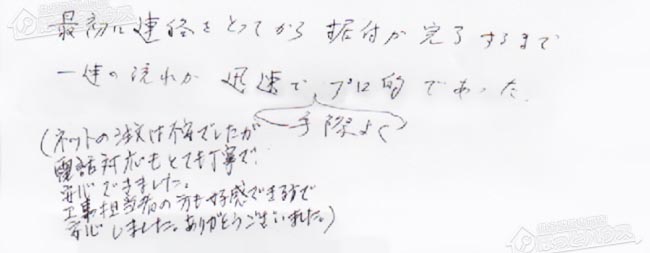 最初に連絡をとってから据付が完了するまで
一連の流れが迅速でプロ的であった。
手際よく
(ネットの注文は不安でしたが
電話対応もとても丁寧で
安心できました。
工事担当者の方も好感できる方で
安心しました。ありがとうございました。)